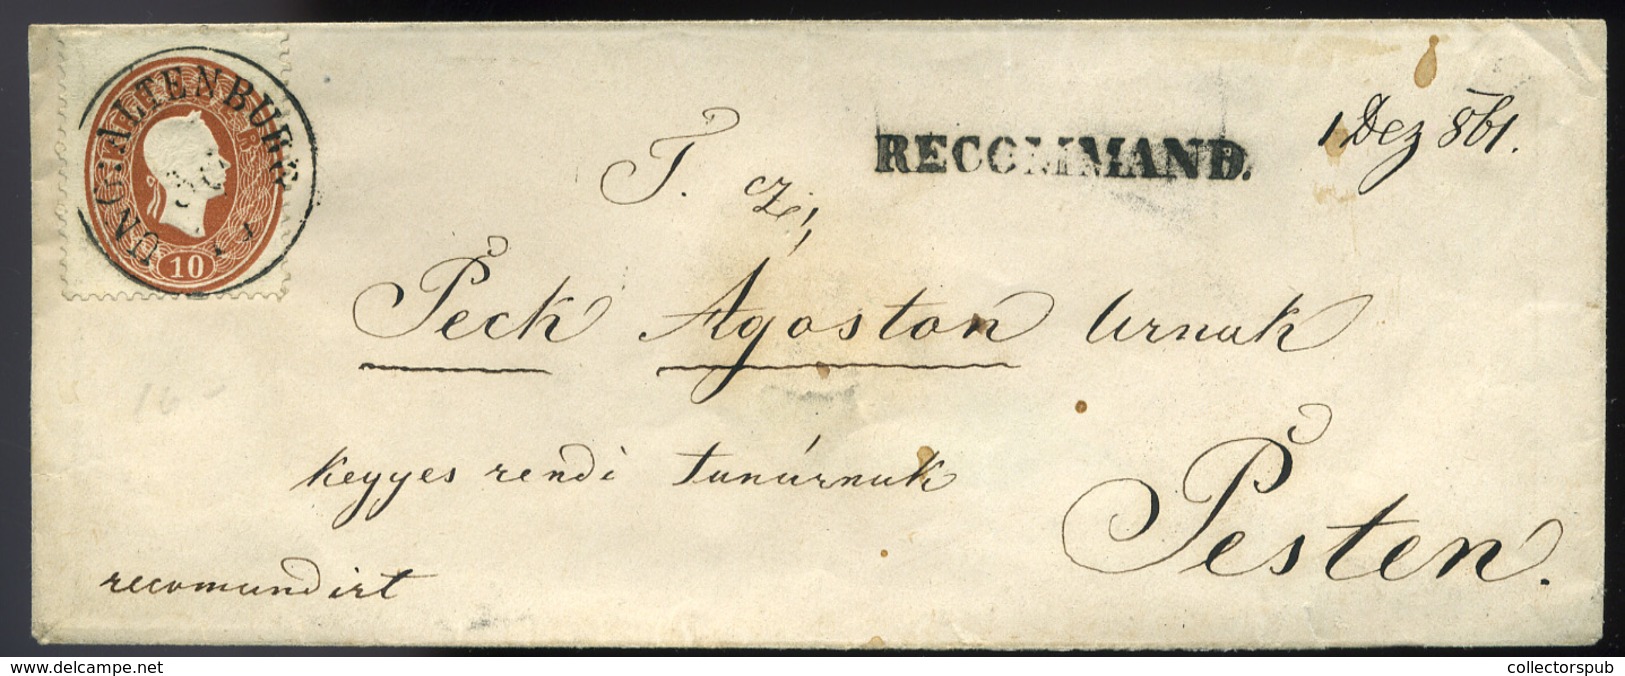 UNG: ALTENBURG
10
RECOMMAND.
1 Dez 861.
T. cz,
Peck Ágoston Urnak
kegyes rendi tanárnak
Pesten.
recomandirt
16 -
www.delcampe.net
collectorspub